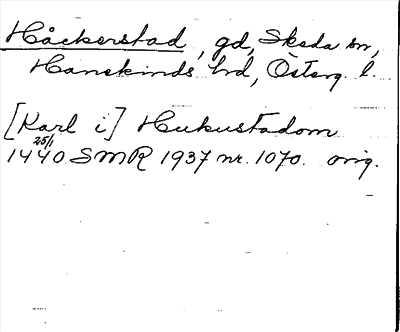 Håckerstad, gd, Skeda sn,
Hanekinds hd, Österg. l.
[Karl i] Hukustadom
25/1
1440 SMR 1937 nr. 1070. orig.